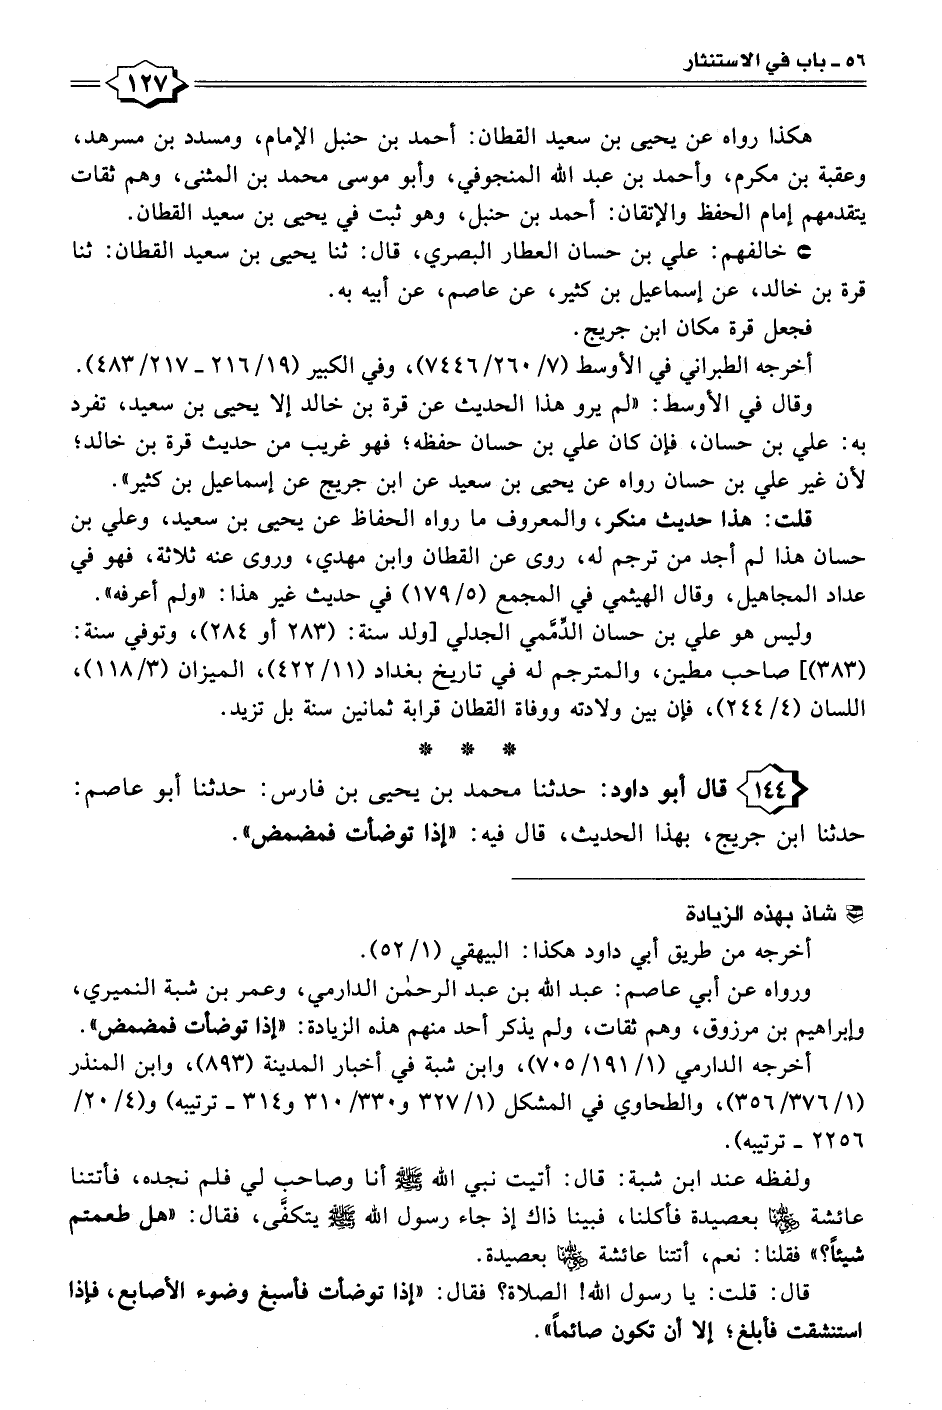 ٥٦ - باب في الاستنثار
١٢٧
هكذا رواه عن يحيى بن سعيد القطان: أحمد بن حنبل الإمام، ومسدد بن مسرهد،
وعقبة بن مكرم، وأحمد بن عبد الله المنجوفي، وأبو موسى محمد بن المثنى، وهم ثقات
يتقدمهم إمام الحفظ والإتقان: أحمد بن حنبل، وهو ثبت في يحيى بن سعيد القطان.
خالفهم: علي بن حسان العطار البصري، قال: ثنا يحيى بن سعيد القطان: ثنا
قرة بن خالد، عن إسماعيل بن كثير، عن عاصم، عن أبيه به.
فجعل قرة مكان ابن جريج.
أخرجه الطبراني في الأوسط (٧/ ٢٦٠/ ٧٤٤٦)، وفي الكبير (١٩/ ٢١٦ - ٢١٧/ ٤٨٣).
وقال في الأوسط: «لم يرو هذا الحديث عن قرة بن خالد إلا يحيى بن سعيد، تفرد
به: علي بن حسان، فإن كان علي بن حسان حفظه؛ فهو غريب من حديث قرة بن خالد؛
لأن غير علي بن حسان رواه عن يحيى بن سعيد عن ابن جريج عن إسماعيل بن كثير».
قلت: هذا حديث منكر، والمعروف ما رواه الحفاظ عن يحيى بن سعيد، وعلي بن
حسان هذا لم أجد من ترجم له، روى عن القطان وابن مهدي، وروى عنه ثلاثة، فهو في
عداد المجاهيل، وقال الهيثمي في المجمع (٥/ ١٧٩) في حديث غير هذا: «ولم أعرفه».
وليس هو علي بن حسان الدِّمَّمي الجدلي [ولد سنة: (٢٨٣ أو ٢٨٤)، وتوفي سنة:
(٣٨٣)] صاحب مطين، والمترجم له في تاريخ بغداد (١١/ ٤٢٢)، الميزان (٣/ ١١٨)،
اللسان (٤/ ٢٤٤)، فإن بين ولادته ووفاة القطان قرابة ثمانين سنة بل تزيد.
* * *
١٤٤ قال أبو داود: حدثنا محمد بن يحيى بن فارس: حدثنا أبو عاصم:
حدثنا ابن جريج، بهذا الحديث، قال فيه: «إذا توضأت فمضمض».
شاذ بهذه الزيادة
أخرجه من طريق أبي داود هكذا: البيهقي (١/ ٥٢).
ورواه عن أبي عاصم: عبد الله بن عبد الرحمٰن الدارمي، وعمر بن شبة النميري،
وإبراهيم بن مرزوق، وهم ثقات، ولم يذكر أحد منهم هذه الزيادة: «إذا توضأت فمضمض».
أخرجه الدارمي (١/ ١٩١/ ٧٠٥)، وابن شبة في أخبار المدينة (٨٩٣)، وابن المنذر
(١/ ٣٧٦/ ٣٥٦)، والطحاوي في المشكل (١/ ٣٢٧ و٣٣٠/ ٣١٠ و٣١٤ - ترتيبه) و(٤/ ٢٠/
٢٢٥٦ - ترتيبه).
ولفظه عند ابن شبة: قال: أتيت نبي الله ﷺ أنا وصاحب لي فلم نجده، فأتتنا
عائشة رضي الله عنها بعصيدة فأكلنا، فبينا ذاك إذ جاء رسول الله ﷺ يتكفَّى، فقال: «هل طعمتم
شيئاً؟» فقلنا: نعم، أتتنا عائشة رضي الله عنها بعصيدة.
قال: قلت: يا رسول الله! الصلاة؟ فقال: «إذا توضأت فأسبغ وضوء الأصابع، فإذا
استنشقت فأبلغ؛ إلا أن تكون صائماً».